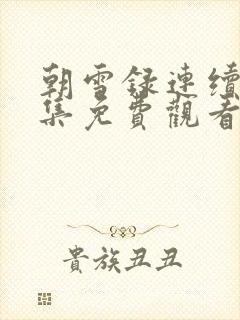 朝雪録連續
集免費觀看
貴族丑丑